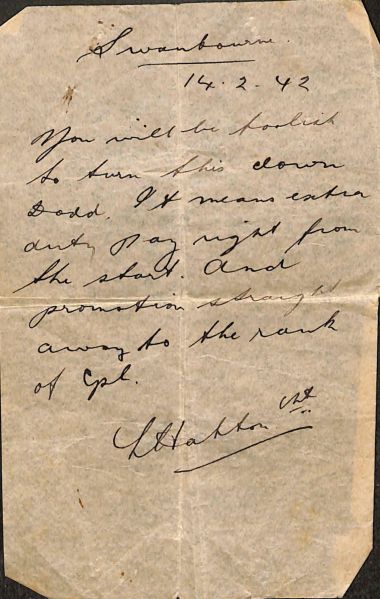 Swanbourne.
14.2.42
You will be foolish
to turn this down
Dodd. It means extra
duty pay right from
the start. And
promotion straight
away to the rank
of Cpl.